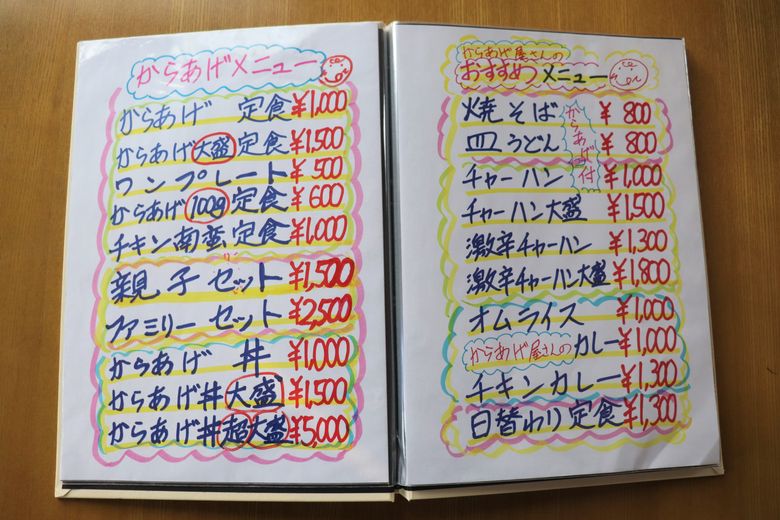 からあげメニュー
からあげ 定食 ¥1,000
からあげ大盛定食 ¥1,500
ワンプレート ¥500
からあげ100g定食 ¥600
チキン南蛮定食 ¥1,000
親子セット ¥1,500
ファミリーセット ¥2,500
からあげ 丼 ¥1,000
からあげ丼大盛 ¥1,500
からあげ丼超大盛 ¥5,000
からあげ屋さんの
おすすめメニュー
焼そば ¥800
皿うどん ¥800
からあげ付
チャーハン ¥1,000
チャーハン大盛 ¥1,500
激辛チャーハン ¥1,300
激辛チャーハン大盛 ¥1,800
オムライス ¥1,000
からあげ屋さんのカレー ¥1,000
チキンカレー ¥1,300
日替わり定食 ¥1,300